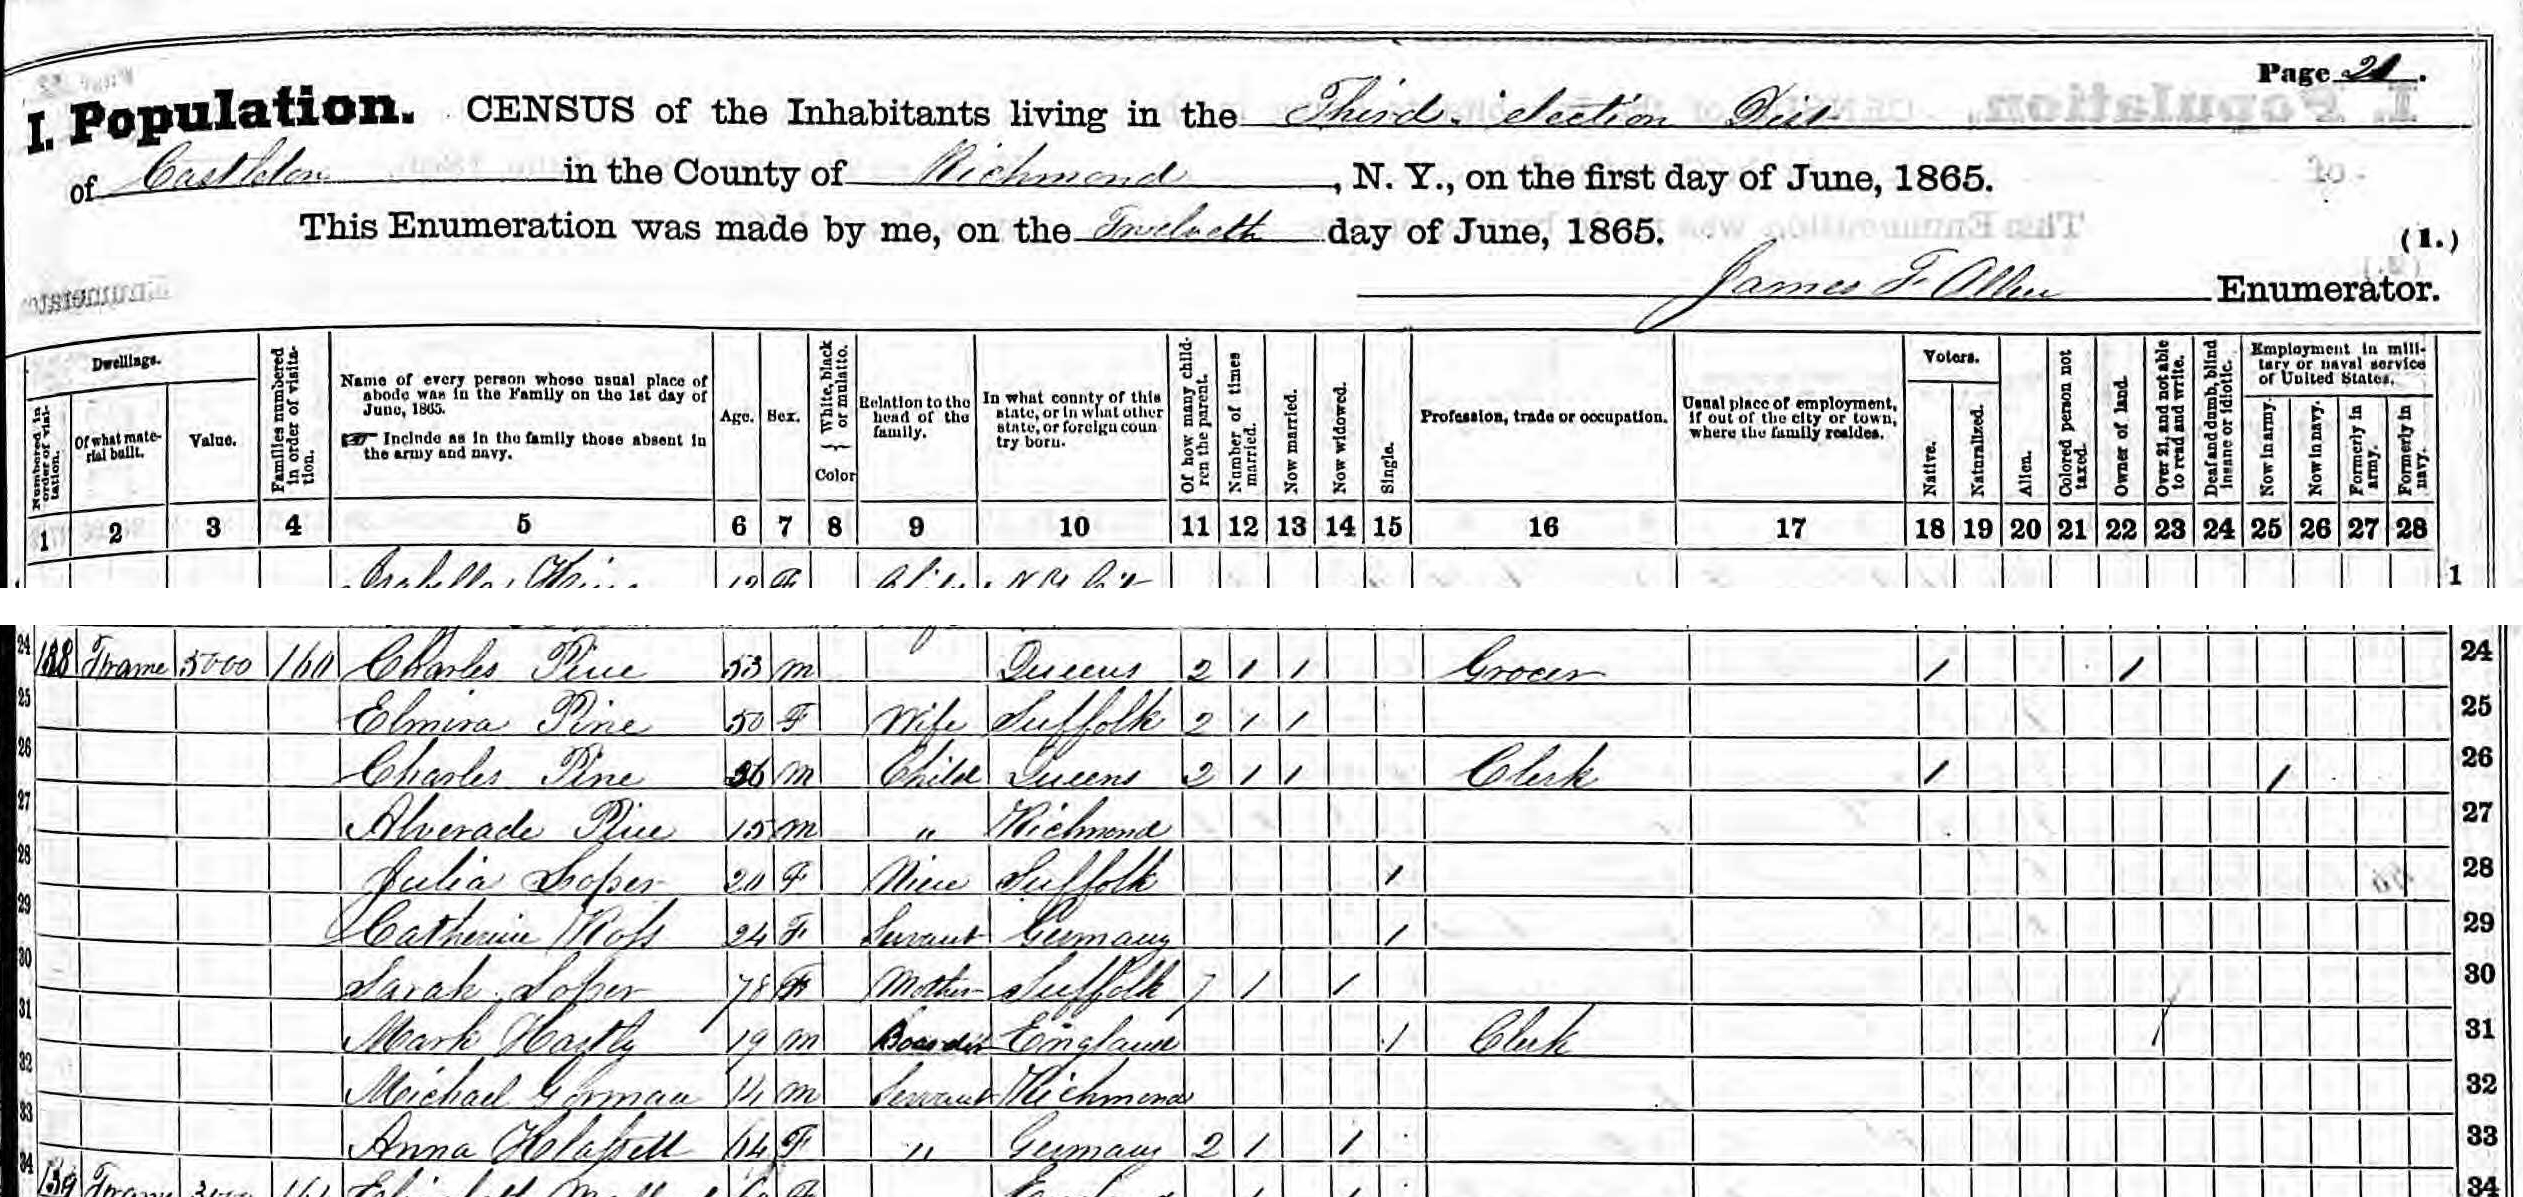 Page 21.
I. Population. CENSUS of the Inhabitants living in the Third election Dist
of Castleton in the County of Richmond, N. Y., on the first day of June, 1865.
This Enumeration was made by me, on the Twelveth day of June, 1865. (1.)
James F. Allen Enumerator.
Numbered in order of visitation.
Dwellings.
Of what material built.
Value.
Families numbered in order of visitation.
Name of every person whose usual place of abode was in the Family on the 1st day of June, 1865.
☞ Include as in the family those absent in the army and navy.
Age.
Sex.
White, black or mulatto. } Color
Relation to the head of the family.
In what county of this state, or in what other state, or foreign country born.
Of how many children the parent.
Number of times married.
Now married.
Now widowed.
Single.
Profession, trade or occupation.
Usual place of employment, if out of the city or town, where the family resides.
Voters.
Native.
Naturalized.
Alien.
Colored person not taxed.
Owner of land.
Over 21, and not able to read and write.
Deaf and dumb, blind insane or idiotic.
Employment in military or naval service of United States.
Now in army.
Now in navy.
Formerly in army.
Formerly in navy.
1 2 3 4 5 6 7 8 9 10 11 12 13 14 15 16 17 18 19 20 21 22 23 24 25 26 27 28
1
24 138 Frame 5000 160 Charles Pine 53 m Queens 2 1 1 Grocer 1 1 24
25 Elmira Pine 50 F Wife Suffolk 2 1 1 25
26 Charles Pine m Child Queens 2 1 1 Clerk 1 1 26
27 Alverade Pine 15 m " Richmond 27
28 Julia Loper 20 F Niece Suffolk 1 28
29 Catherine 24 F Servant Germany 1 29
30 Sarah Loper 78 F Mother Suffolk 7 1 1 30
31 Mark Hastly 19 m Boarder England 1 Clerk 31
32 Michael Gorman 14 m Servant Richmond 32
33 Anna 64 F " Germany 2 1 1 33
34 139 Frame 161 Elizabeth F 34